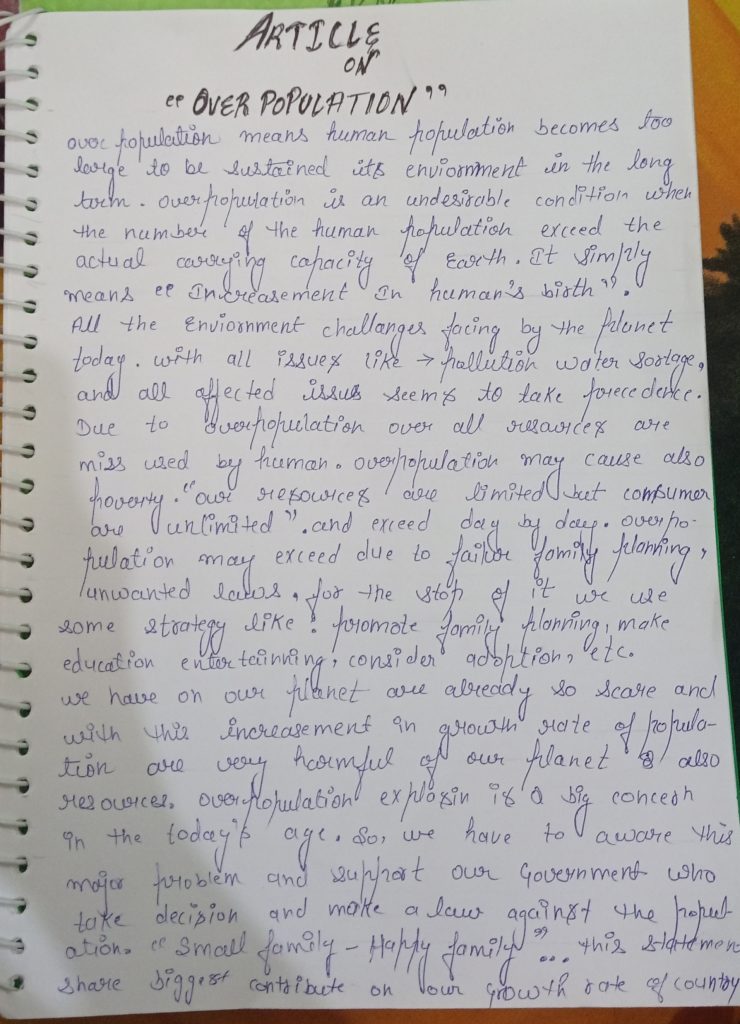 ARTICLE
ON
"OVER POPULATION"
over population means human population becomes too
large to be sustained its enviornment in the long
term. overpopulation is an undesirable condition when
the number of the human population exceed the
actual carrying capacity of Earth. It simply
means "Increasement In human's birth".
All the Enviornment challanges facing by the planet
today. with all issues like → pallution water sortage,
and all affected issus seems to take precedence.
Due to overpopulation over all resources are
miss used by human. overpopulation may cause also
poverty. "our resources are limited but comsumer
are unlimited". and exceed day by day. overpo-
pulation may exceed due to failur family planning,
unwanted laws, for the stop of it we use
some strategy like : promote family planning, make
education entertainning, consider adoption, etc.
we have on our planet are already so scare and
with this increasement in growth rate of popula-
tion are very harmful of our planet & also
resources. overpopulation explosin is a big concern
in the today's age. So, we have to aware this
major problem and support our Government who
take decision and make a law against the popul-
ation. "Small family - Happy family" ... this statemen
share biggest contribute on our growth rate of country